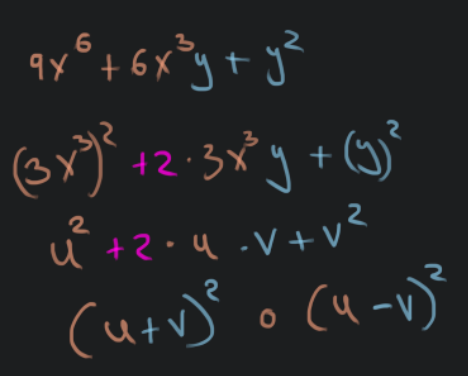 9x⁶ + 6x³y + y²
(3x³)² + 2 · 3x³ y + (y)²
u² + 2 · u · v + v²
(u + v)² o (u - v)²